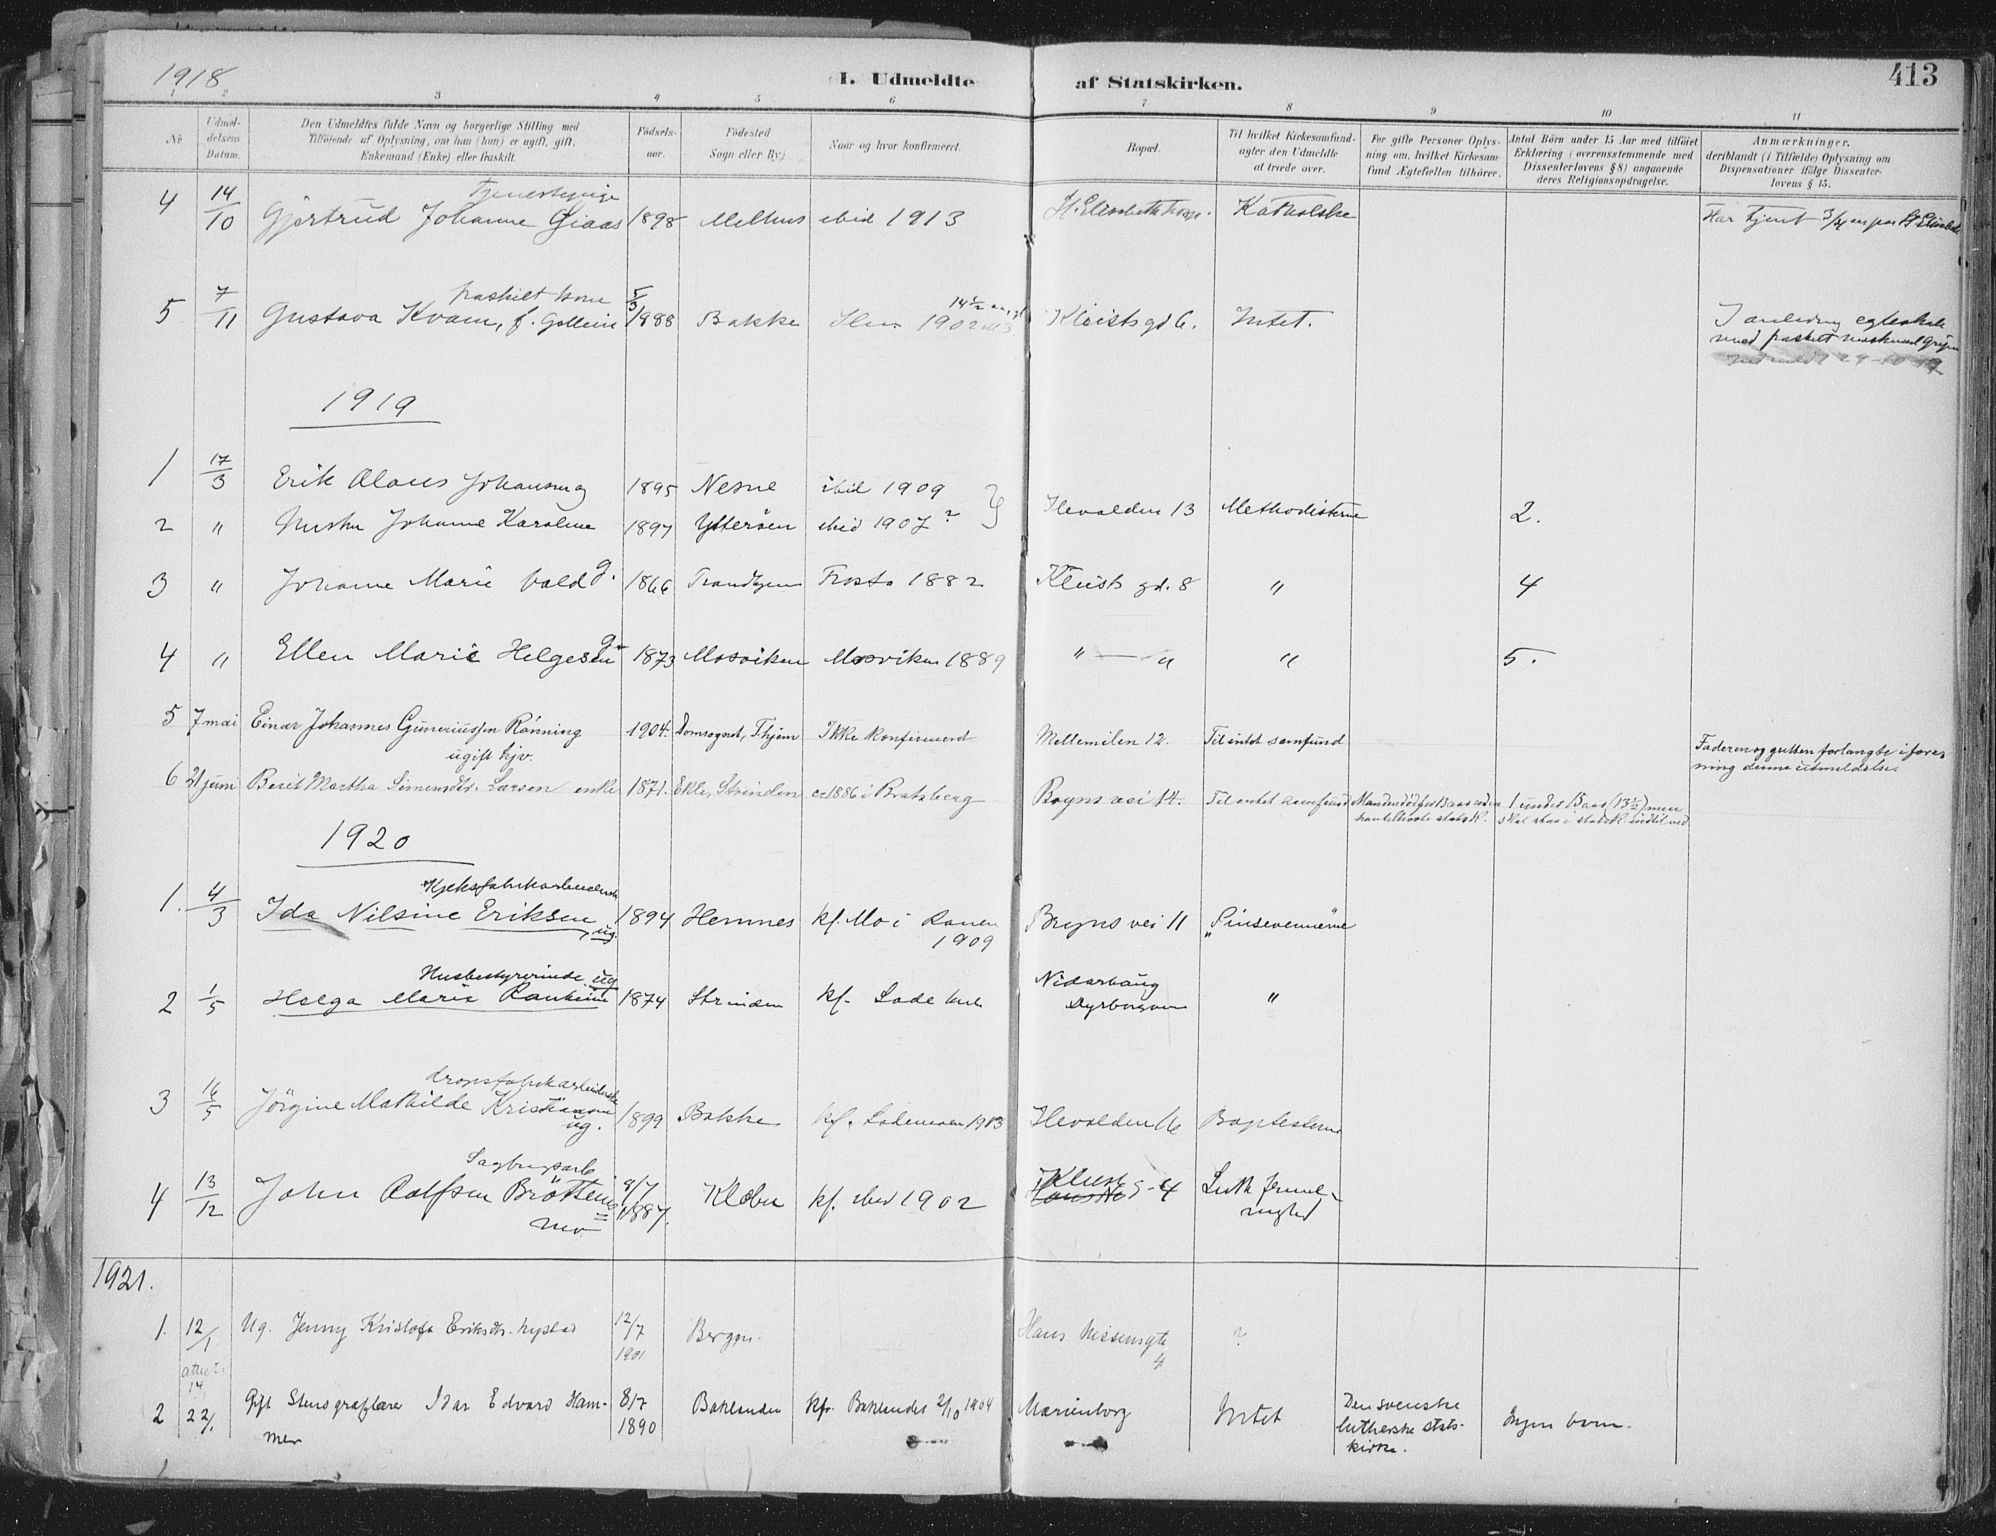 1918
I. Udmeldte af Statskirken.
413
1 2 3 4 5 6 7 8 9 10 11
No
Udmel-
delsens
Datum.
Den Udmeldtes fulde Navn og borgerlige Stilling med
Tilföiende af Oplysning, om han (hun) er ugift, gift,
Enkemand (Enke) eller fraskilt.
Födsels-
aar.
Födested
Sogn eller By.)
Naar og hvor konfirmeret.
Bopæl.
Til hvilket Kirkesamfund-
agter den Udmeldte
at træde over.
For gifte Personer Oplys-
ning om, hvilket Kirkesam-
fund Ægtefællen tilhörer.
Antal Börn under 15 Aar med tilföiet
Erklæring (overensstemmende med
Dissenterlovens § 8) angaaende
deres Religionsopdragelse.
Anmærkninger.
deriblandt (i Tilfælde) Oplysning om
Dispensationer ifölge Dissenter-
lovens § 15.
tjenestepige
4 14/10 Gjertrud Johanne Giaas 1898 Melhus ibid 1913 St. Elisabeths hosp. Katholske Har tjent 3/4 aar paa St Elisabeth
fraskilt kone
5 7/11 Gustava Kvam, f. Gollein 5/3 1888 Bakke Ilen 1902 14 1/2 aar gl. Kleists gd 6. Intet. I anledning egteskab
med fraskilt
Indmeldt 29-10-19
1919
1 17/3 Erik Olaus Johansen g 1895 Nesne ibid 1909
Ilevolden 13 Methodisterne 2.
2 " Hustru Johanne Karoline 1897 Ytterøen ibid 1907 ?
3 " Johanne Marie Vold g. 1866 Trondhjem Frosta 1882 Kleists gd. 8 " 4
4 " Ellen Marie Helgesen g. 1873 Mosviken Mosviken 1889 " — " " 5.
5 7 mai Einar Johannes Guneriussen Rønning 1904. Domsognet, T.hjem Ikke konfirmeret Mellemilen 12. Til intet samfund Faderen og gutten forlangte i fore-
ugift hjv.
ning denne utmeldelse.
6 21 juni Berit Martha Simensdtr. Larsen enke 1871. Ekle, Strinden ca 1886 i Bratsberg Bryns vei 14. Til intet samfund Manden død for 13 aar siden 1 under 15 aar (13 1/2) men
han tilhørte statsk. skal staa i statsk. indtil ved
1920
Kjeksfabrikarbeiderske
1. 4/3 Ida Nilsine Eriksen ug. 1894 Hemnes kf. Mo i Ranen Bryns vei 11 "Pinsevennerne
1909
Husbestyrerinde ug
2 1/5 Helga Marie Ranheim 1874 Strinden kf. Lade kirke Nidarhaug
Dyrborgveien "
dropsfabrikarbeiderske
3 16/5 Jörgine Mathilde Kristiansen 1899 Bakke kf. Lademoen 1913 Ilevolden 16 Baptisterne
ug.
Sagbrugsarb
4 13/12 John Rolfsen Brøttem 9/7 1887. Klæbu kf. ibid 1902 Kleists g-4 Luth frimel-
nighed
1921.
1. 12/1 Ug. Jenny Kristofa Eriksdtr. Nystad 12/7 1901 Bergen. Hans Nissensgte
4 ?
attest:
14/
2 22/1 Gift Stenograflærer Idar Edvard Ham- 8/7 1890 Baklandet kfr. Baklandet 2/10 1904 Marienborg Intet Den svenske
lutherske stats-
kirke. Ingen barn.
mer